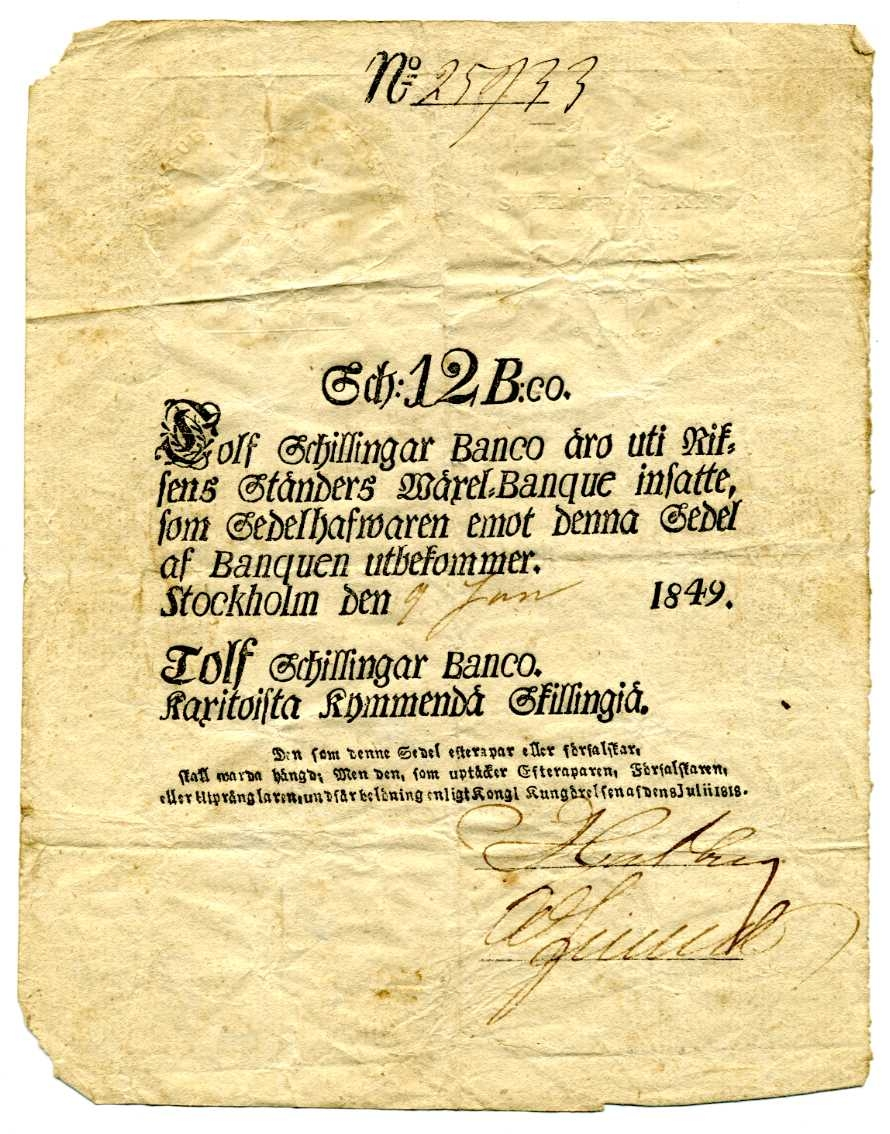 No 25933
Sch: 12 B:co.
Tolf Schillingar Banco äro uti Rik=
sens Ständers Wäxel=Banque insatte,
som Sedelhafwaren emot denna Sedel
af Banquen utbekommer.
Stockholm den 9 Jan 1849.
Tolf Schillingar Banco.
Kaxitoista Kymmendä Skillingiä.
Den som denne Sedel efterapar eller förfalskar,
skall warda hängd; Men den, som uptäcker Efteraparen, Förfalskaren,
eller Utprånglaren, undfår belöning enligt Kongl Kungörelsen af den 8 Julii 1818.